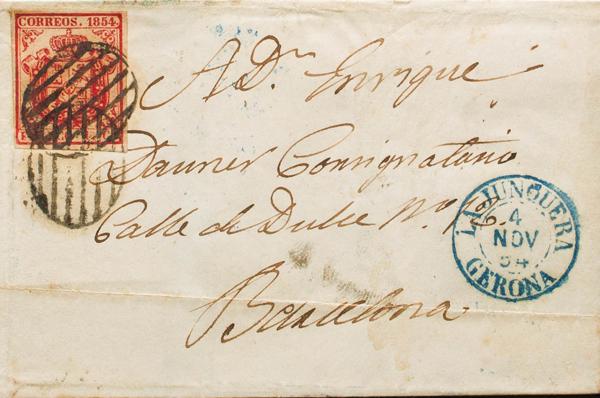 CORREOS. 1854.
A Dn Enrique
Dauner Consignatario
Calle de Dulce No. 12.
Barcelona
LA JUNQUERA
4
NOV
54
GERONA